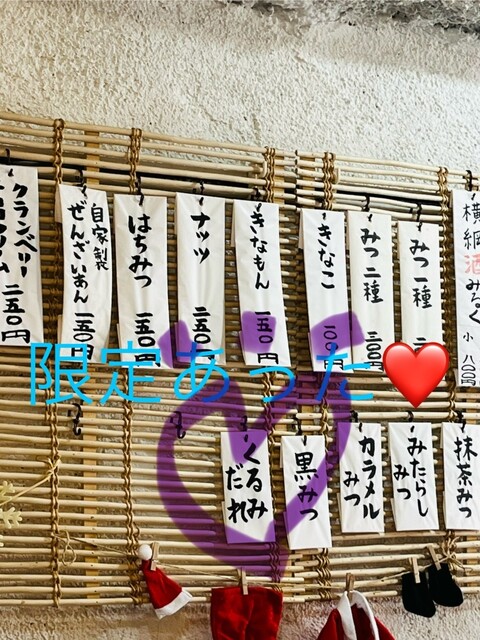 横綱酒みるく 小 八〇〇円
みつ一種
みつ二種
きなこ 一〇〇円
きなもん 一五〇円
ナッツ 一五〇円
はちみつ 一五〇円
自家製
ぜんざいあん 一五〇円
クランベリー
二五〇円
限定あった❤️
抹茶みつ
みたらしみつ
カラメルみつ
黒みつ
くるみ
だれ